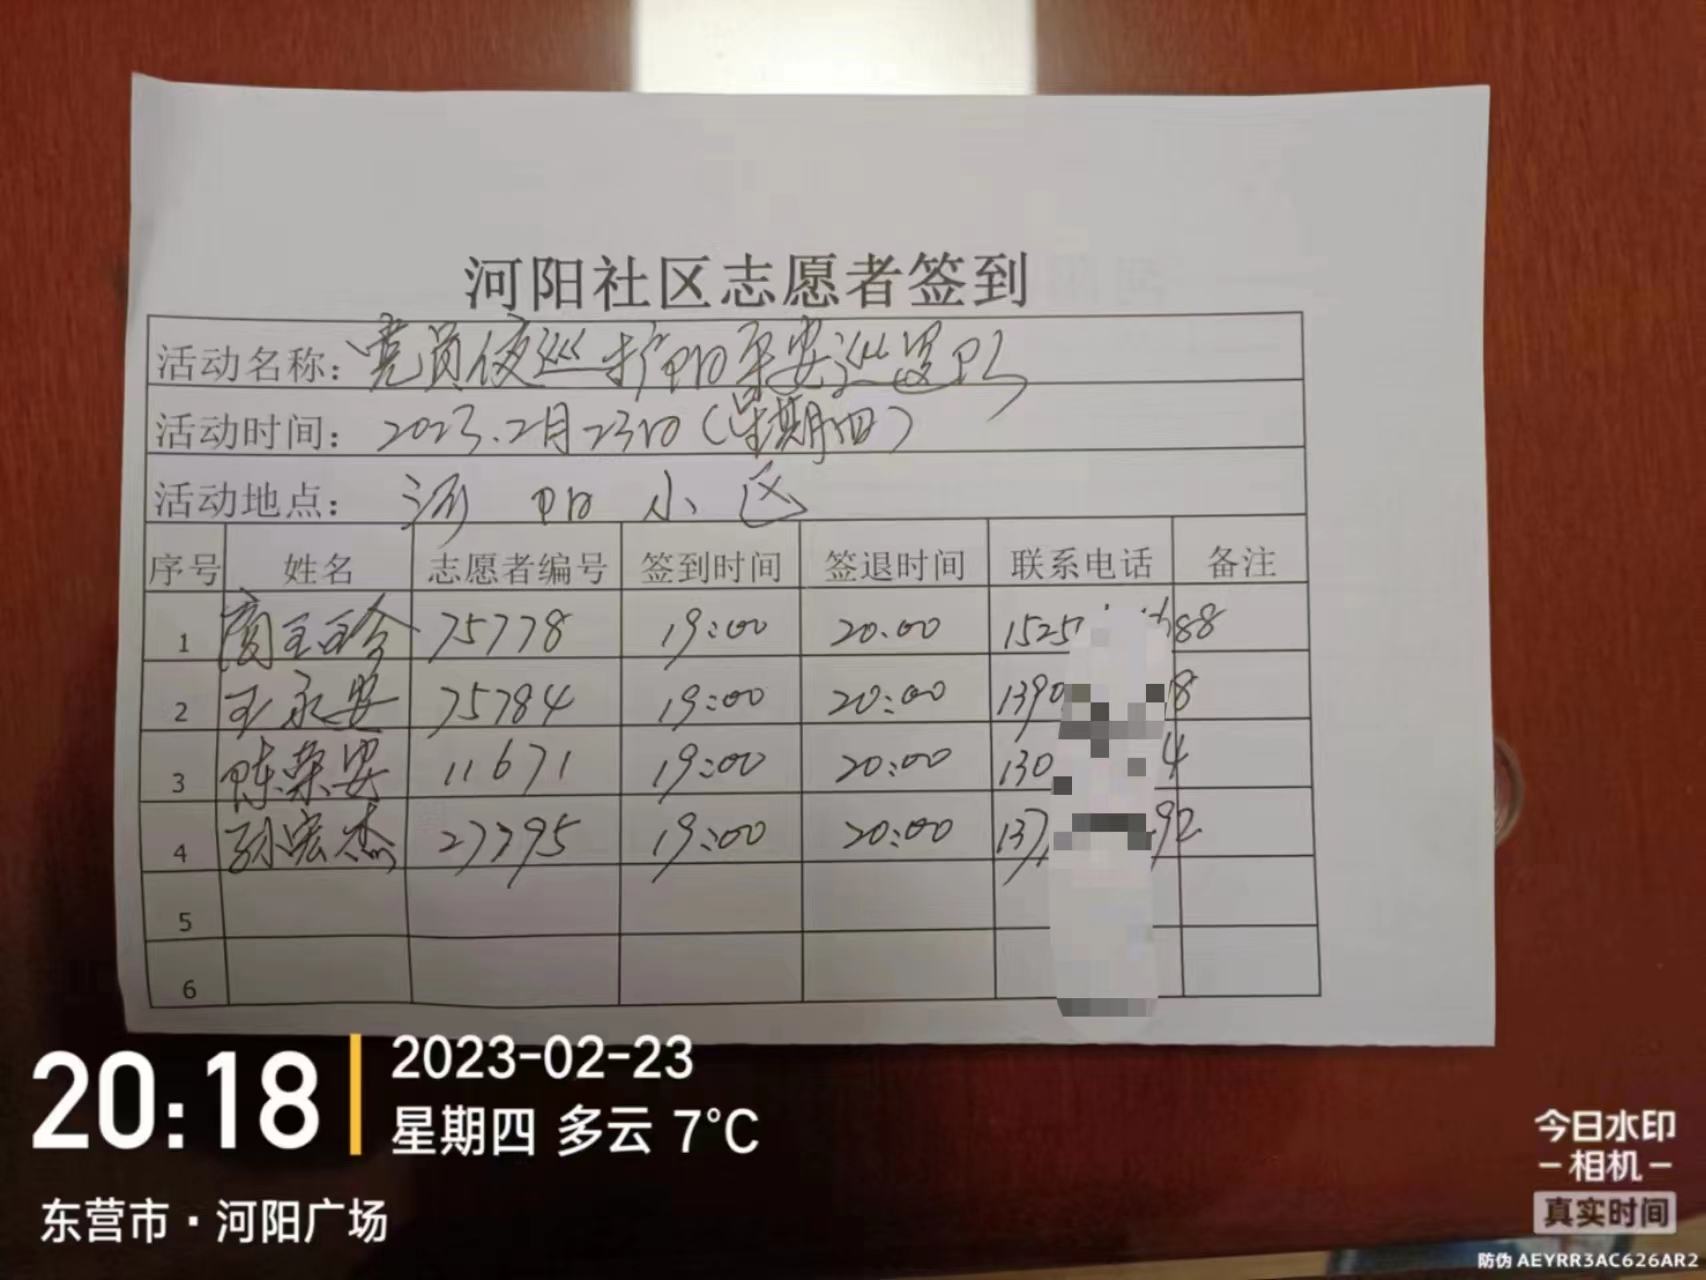 河阳社区志愿者签到
活动名称：党员夜巡护阳平安巡逻队
活动时间：2023.2月23日（星期四）
活动地点：河阳小区
序号 姓名 志愿者编号 签到时间 签退时间 联系电话 备注
1 75778 19:00 20:00 1525 88
2 王永安 75784 19:00 20:00 1390 8
3 陈荣安 11671 19:00 20:00 130 4
4 孙宏杰 27795 19:00 20:00 137 92
5
6
20:18
2023-02-23
星期四 多云 7°C
东营市·河阳广场
今日水印
-相机-
真实时间
防伪 AEYRR3AC626AR2